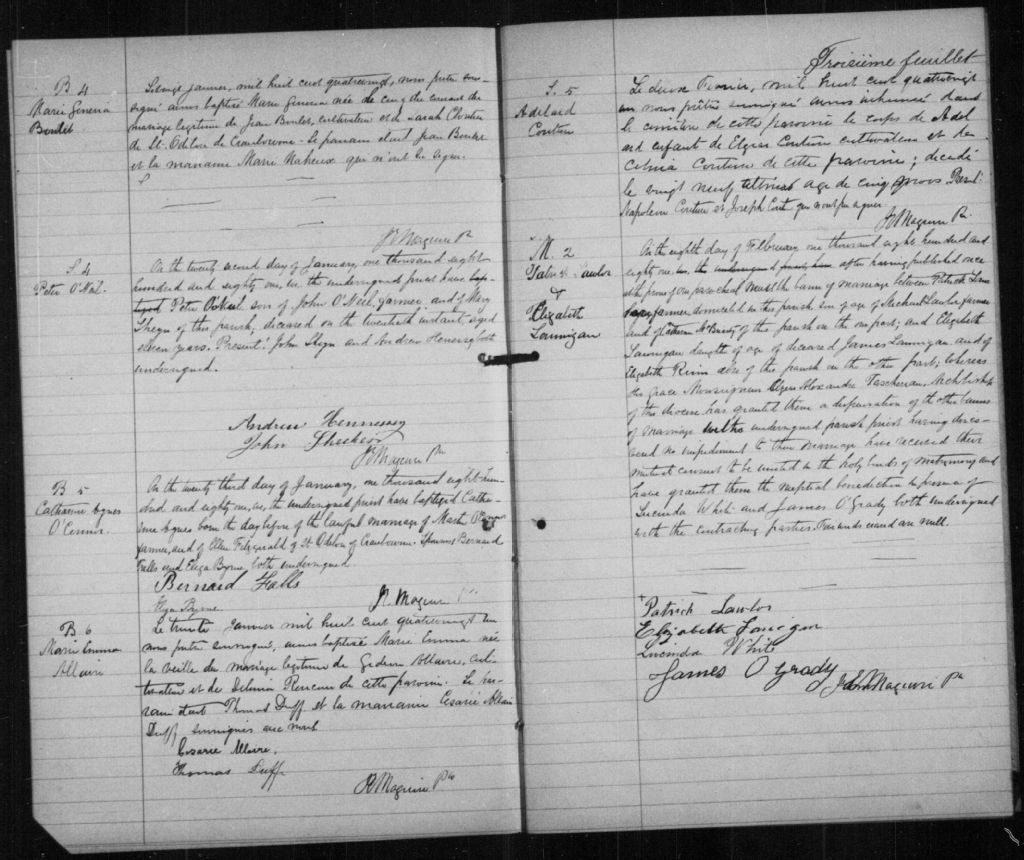 B 4
Marie Genevia
Boulet
janvier, mil huit cent quatrevingt, nous prêtre sous-
signé avons baptisé Marie Genevia née le cinq du courant du
mariage légitime de Jean Boulet, cultivateur et de Sarah
de St. Odilon de Cranbourne. Le parrain était Jean Boulet
et la marraine Marie qui n'ont su signer.
J. Maguire Ptr
S 4
Peter O'Neil.
On the twenty second day of January, one thousand eight
hundred and eighty one, we the undersigned priest have
Peter O'Neil son of John O'Neil, farmer, and of Mary
of this parish, deceased on the twentieth instant, aged
eleven years. Present: John and Andrew Hennessy both
undersigned.
Andrew Hennessy
John
J. Maguire Ptr
B 5
Catharine Agnes
O'Connor.
On the twenty third day of January, one thousand eight hun-
dred and eighty one, we, the undersigned priest have baptized Catha-
rine Agnes born the day before of the lawful marriage of O'Connor
farmer, and of Ellen Fitzgerald of St. Odilon of Cranbourne. Sponsors Bernard
Falls and Eliza Byrne, both undersigned
Bernard Falls
Eliza Byrne
J. Maguire Ptr
B 6
Marie Emma
Allaire
Le trente janvier mil huit cent quatrevingt un
nous prêtre soussigné, avons baptisé Marie Emma née
la veille du mariage légitime de Gédéon Allaire, cul-
tivateur et de Délima de cette paroisse. Le par-
rain était Thomas Duff et la marraine Césarie Allaire
Duff, soussignés avec nous
Cesarie Allaire.
Thomas Duff
J. Maguire Ptr
Troisième feuillet
S. 5
Adélard
Couture
Le deux Février, mil huit cent quatrevingt
un nous prêtre soussigné avons inhumé dans
le cimetière de cette paroisse le corps de Adel
ard enfant de Elzear Couture cultivateur et de
Celina Couture de cette paroisse; décédé
le vingt neuf ultimo agé de cinq mois. Présent:
Napoléon Couture et Joseph qui n'ont su signer.
J. Maguire Ptr
M. 2
Patrick Lawlor
&
Elizabeth
Lannigan
On the eighth day of February one thousand eight hundred and
eighty one we the undersigned parish priest after having published once
at the prone of our parochial Mass the banns of marriage between Patrick Law
lor farmer domiciled in this parish son of age of Michael Lawlor farmer
and of of this parish on the one part; and Elizabeth
Lannigan daughter of age of deceased James Lannigan and of
Elizabeth also of this parish on the other part, whereas
His Grace Monseigneur Elzear Alexandre Taschereau, Archbishop
of this diocese has granted them a dispensation of the other banns
of marriage we the undersigned parish priest having disco-
vered no impediment to their marriage have received their
mutual consent to be united in the holy bonds of matrimony and
have granted them the nuptial benediction in presence of
Lucinda White and James O'Grady both undersigned
with the contracting parties. words erased are null.
Patrick Lawlor
Elizabeth Lonigan
Lucinda White
James O Grady
John Maguire Ptr